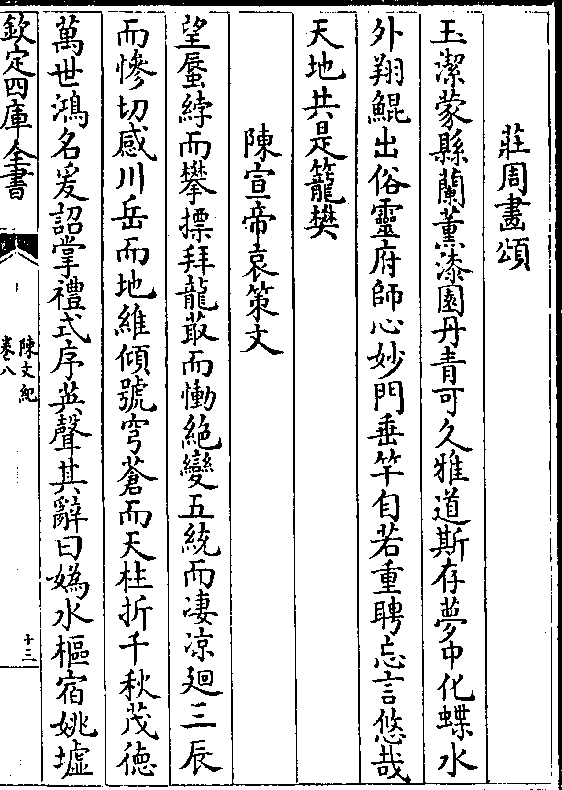 莊周畫頌
玉潔蒙縣蘭薫漆園丹青可久雅道斯存夢中化蝶水
外翔鯤出俗靈府師心妙門垂竿自若重聘忘言悠哉
天地共是籠樊
陳宣帝哀策文
望蜃綍而攀摽拜龍菆而慟絶變五統而凄凉廻三辰
而慘切感川岳而地維傾號穹蒼而天柱折千秋茂徳
萬世鴻名爰詔掌禮式序英聲其辭曰媯水樞宿姚墟
欽定四庫全書
陳文紀
卷八
十三